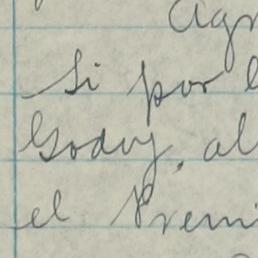 Agr
Si por l
Godoy, al
el Premi